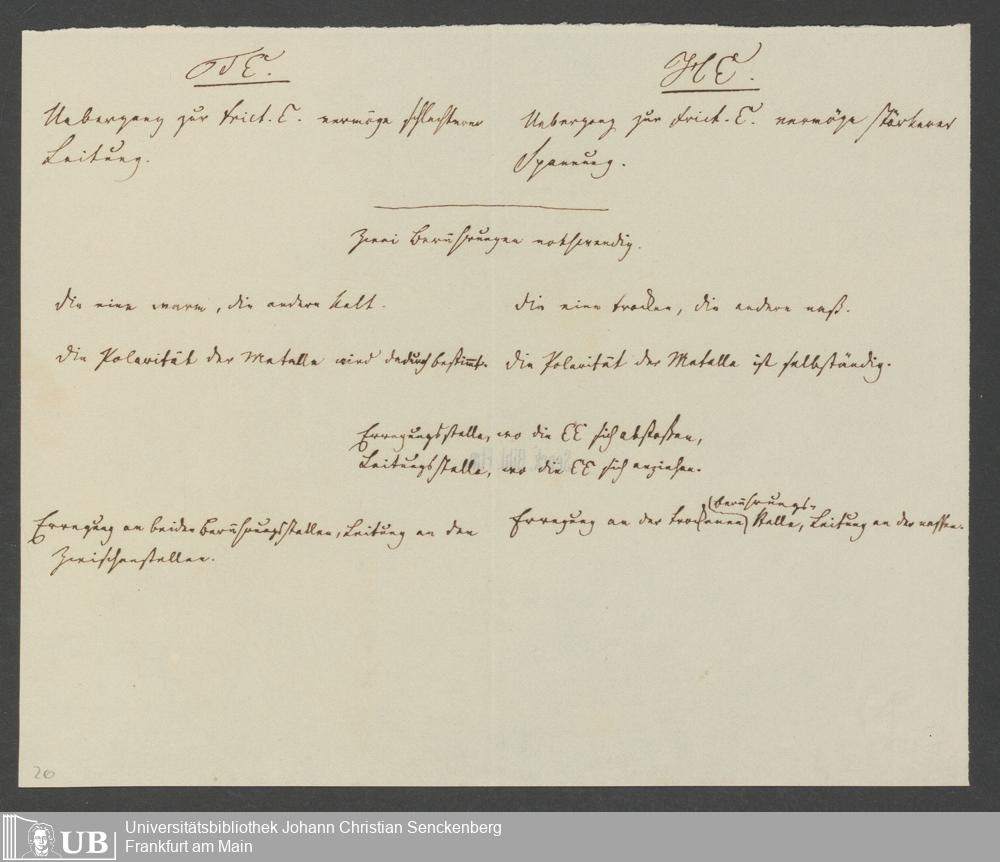 T E.
H E.
Uebergang zur Frict. E. vermöge schlechterer
Leitung.
Uebergang zur Frict. E. vermöge stärkerer
Spannung.
Zwei Berührungen nothwendig.
die eine warm, die andere kalt.
die eine trocken, die andere naß.
die Polarität der Metalle wird dadurch bestimmt.
die Polarität der Metalle ist selbständig.
Erregungsstelle, wo die EE sich abstoßen,
Leitungsstelle, wo die EE sich anziehen.
Erregung an beiden Berührungsstellen, Leitung an den
Zwischenstellen.
Berührungs-
Erregung an der trockenen Stelle, Leitung an der nassen.
20
UB
Universitätsbibliothek Johann Christian Senckenberg
Frankfurt am Main